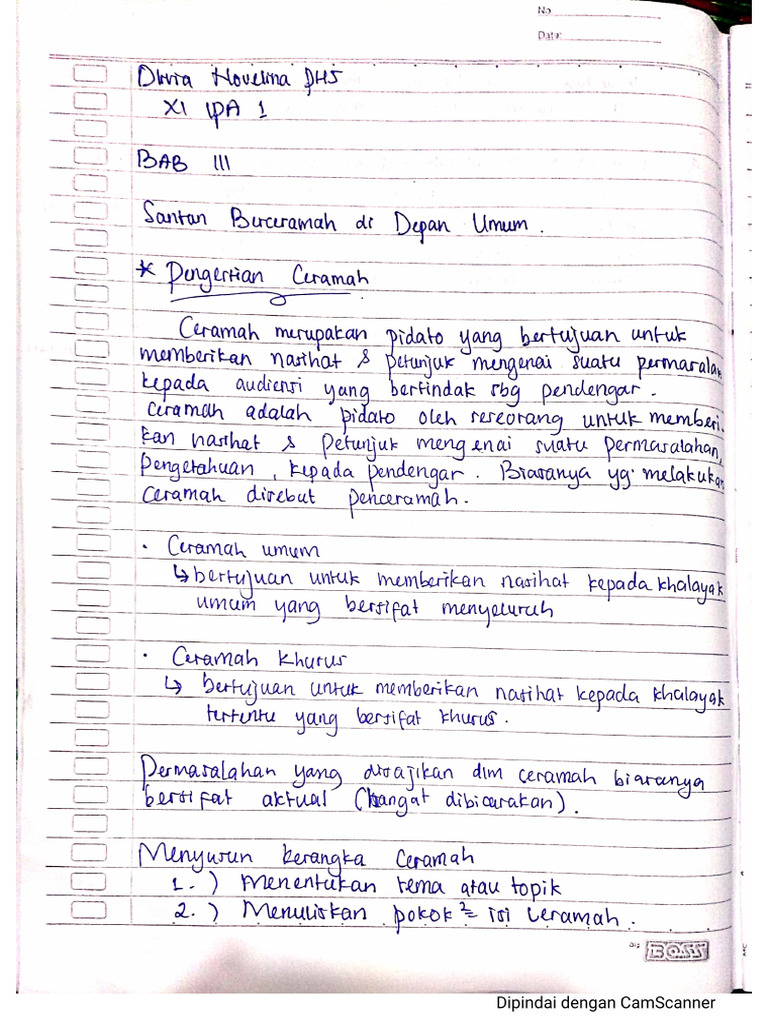 No
Date:
Olivia Novelina DHS
XI IPA 1
BAB III
Santan Berceramah di Depan Umum.
* Pengertian Ceramah
Ceramah merupakan pidato yang bertujuan untuk
memberikan nasihat & petunjuk mengenai suatu permasalah
kepada audiensi yang bertindak sbg pendengar.
Ceramah adalah pidato oleh seseorang untuk memberi
kan nasihat & petunjuk mengenai suatu permasalahan,
pengetahuan, kepada pendengar. Biasanya yg melakukan
ceramah disebut penceramah.
• Ceramah umum
↳ bertujuan untuk memberikan nasihat kepada khalayak
umum yang bersifat menyeluruh
• Ceramah khusus
↳ bertujuan untuk memberikan nasihat kepada khalayak
tertentu yang bersifat khusus.
Permasalahan yang disajikan dlm ceramah biasanya
bersifat aktual (hangat dibicarakan).
Menyusun kerangka ceramah
1.) Menentukan tema atau topik
2.) Menuliskan pokok² isi ceramah.
BOSS
Dipindai dengan CamScanner